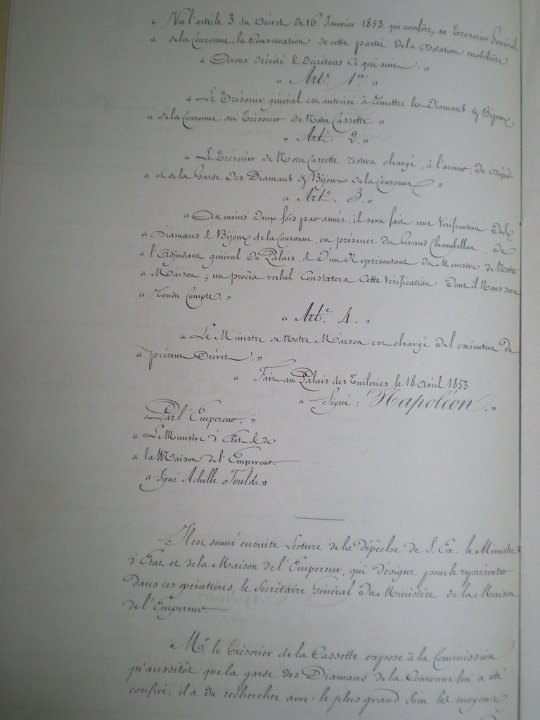 « Vu l'article 3 du Décret du 16 Janvier 1853 qui confère, au Trésorier Général
« de la Couronne, la Conservation de cette partie de la Dotation mobilière
« Avons décidé & décrétons ce qui suit. »
« Art. 1er »
« Le Trésorier général est autorisé à remettre les Diamans & Bijoux,
« de la Couronne au Trésorier de Notre Cassette »
« Art. 2. »
« Le Trésorier de Notre Cassette restera chargé, à l'avenir, du dépôt
« et de la Garde des Diamans & Bijoux de la Couronne »
« Art. 3. »
« Au moins deux fois par année, il sera fait une Vérification des
« Diamans & Bijoux de la Couronne, en présence du Grand Chambellan, de
« l'Adjudant général du Palais, & d'un Représentant du Ministre de Notre
« Maison ; un procès verbal Constatera Cette Vérification dont il Nous sera
« rendu Compte. »
« Art. 4. »
« Le Ministre de Notre Maison est chargé de l'exécution du
« présent Décret. »
« Fait au Palais des Tuileries le 18 avril 1853
« Signé : Napoléon. »
« Par l'Empereur. »
« Le Ministre d'Etat & de
« la Maison de l'Empereur
« Signé Achille Fould. »
Il est donné ensuite Lecture de la dépêche de S. Ex. le Ministre
d'Etat et de la Maison de l'Empereur, qui désigne pour le représenter
dans ces opérations, le Secrétaire Général du Ministère de la Maison
de l'Empereur
Mr. le Trésorier de la Cassette expose à la Commission
qu'aussitôt que la garde des Diamans de la Couronne lui a été
confiée, il a du rechercher avec le plus grand Soin les moyens